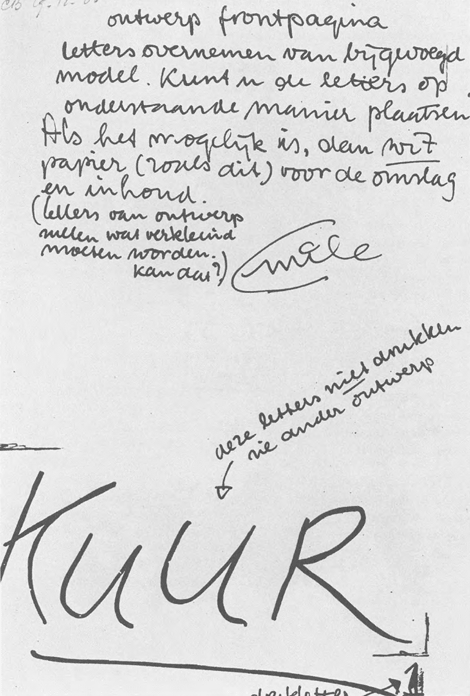 ontwerp frontpagina
letters overnemen van bijgevoegd
model. Kunt u de letters op
onderstaande manier plaatsen.
Als het mogelijk is, dan wit
papier (zoals dit) voor de omslag
en inhoud.
(letters van ontwerp
zullen wat verkleind
moeten worden.
kan dat?)
deze letters niet drukken
zie ander ontwerp
KUUR